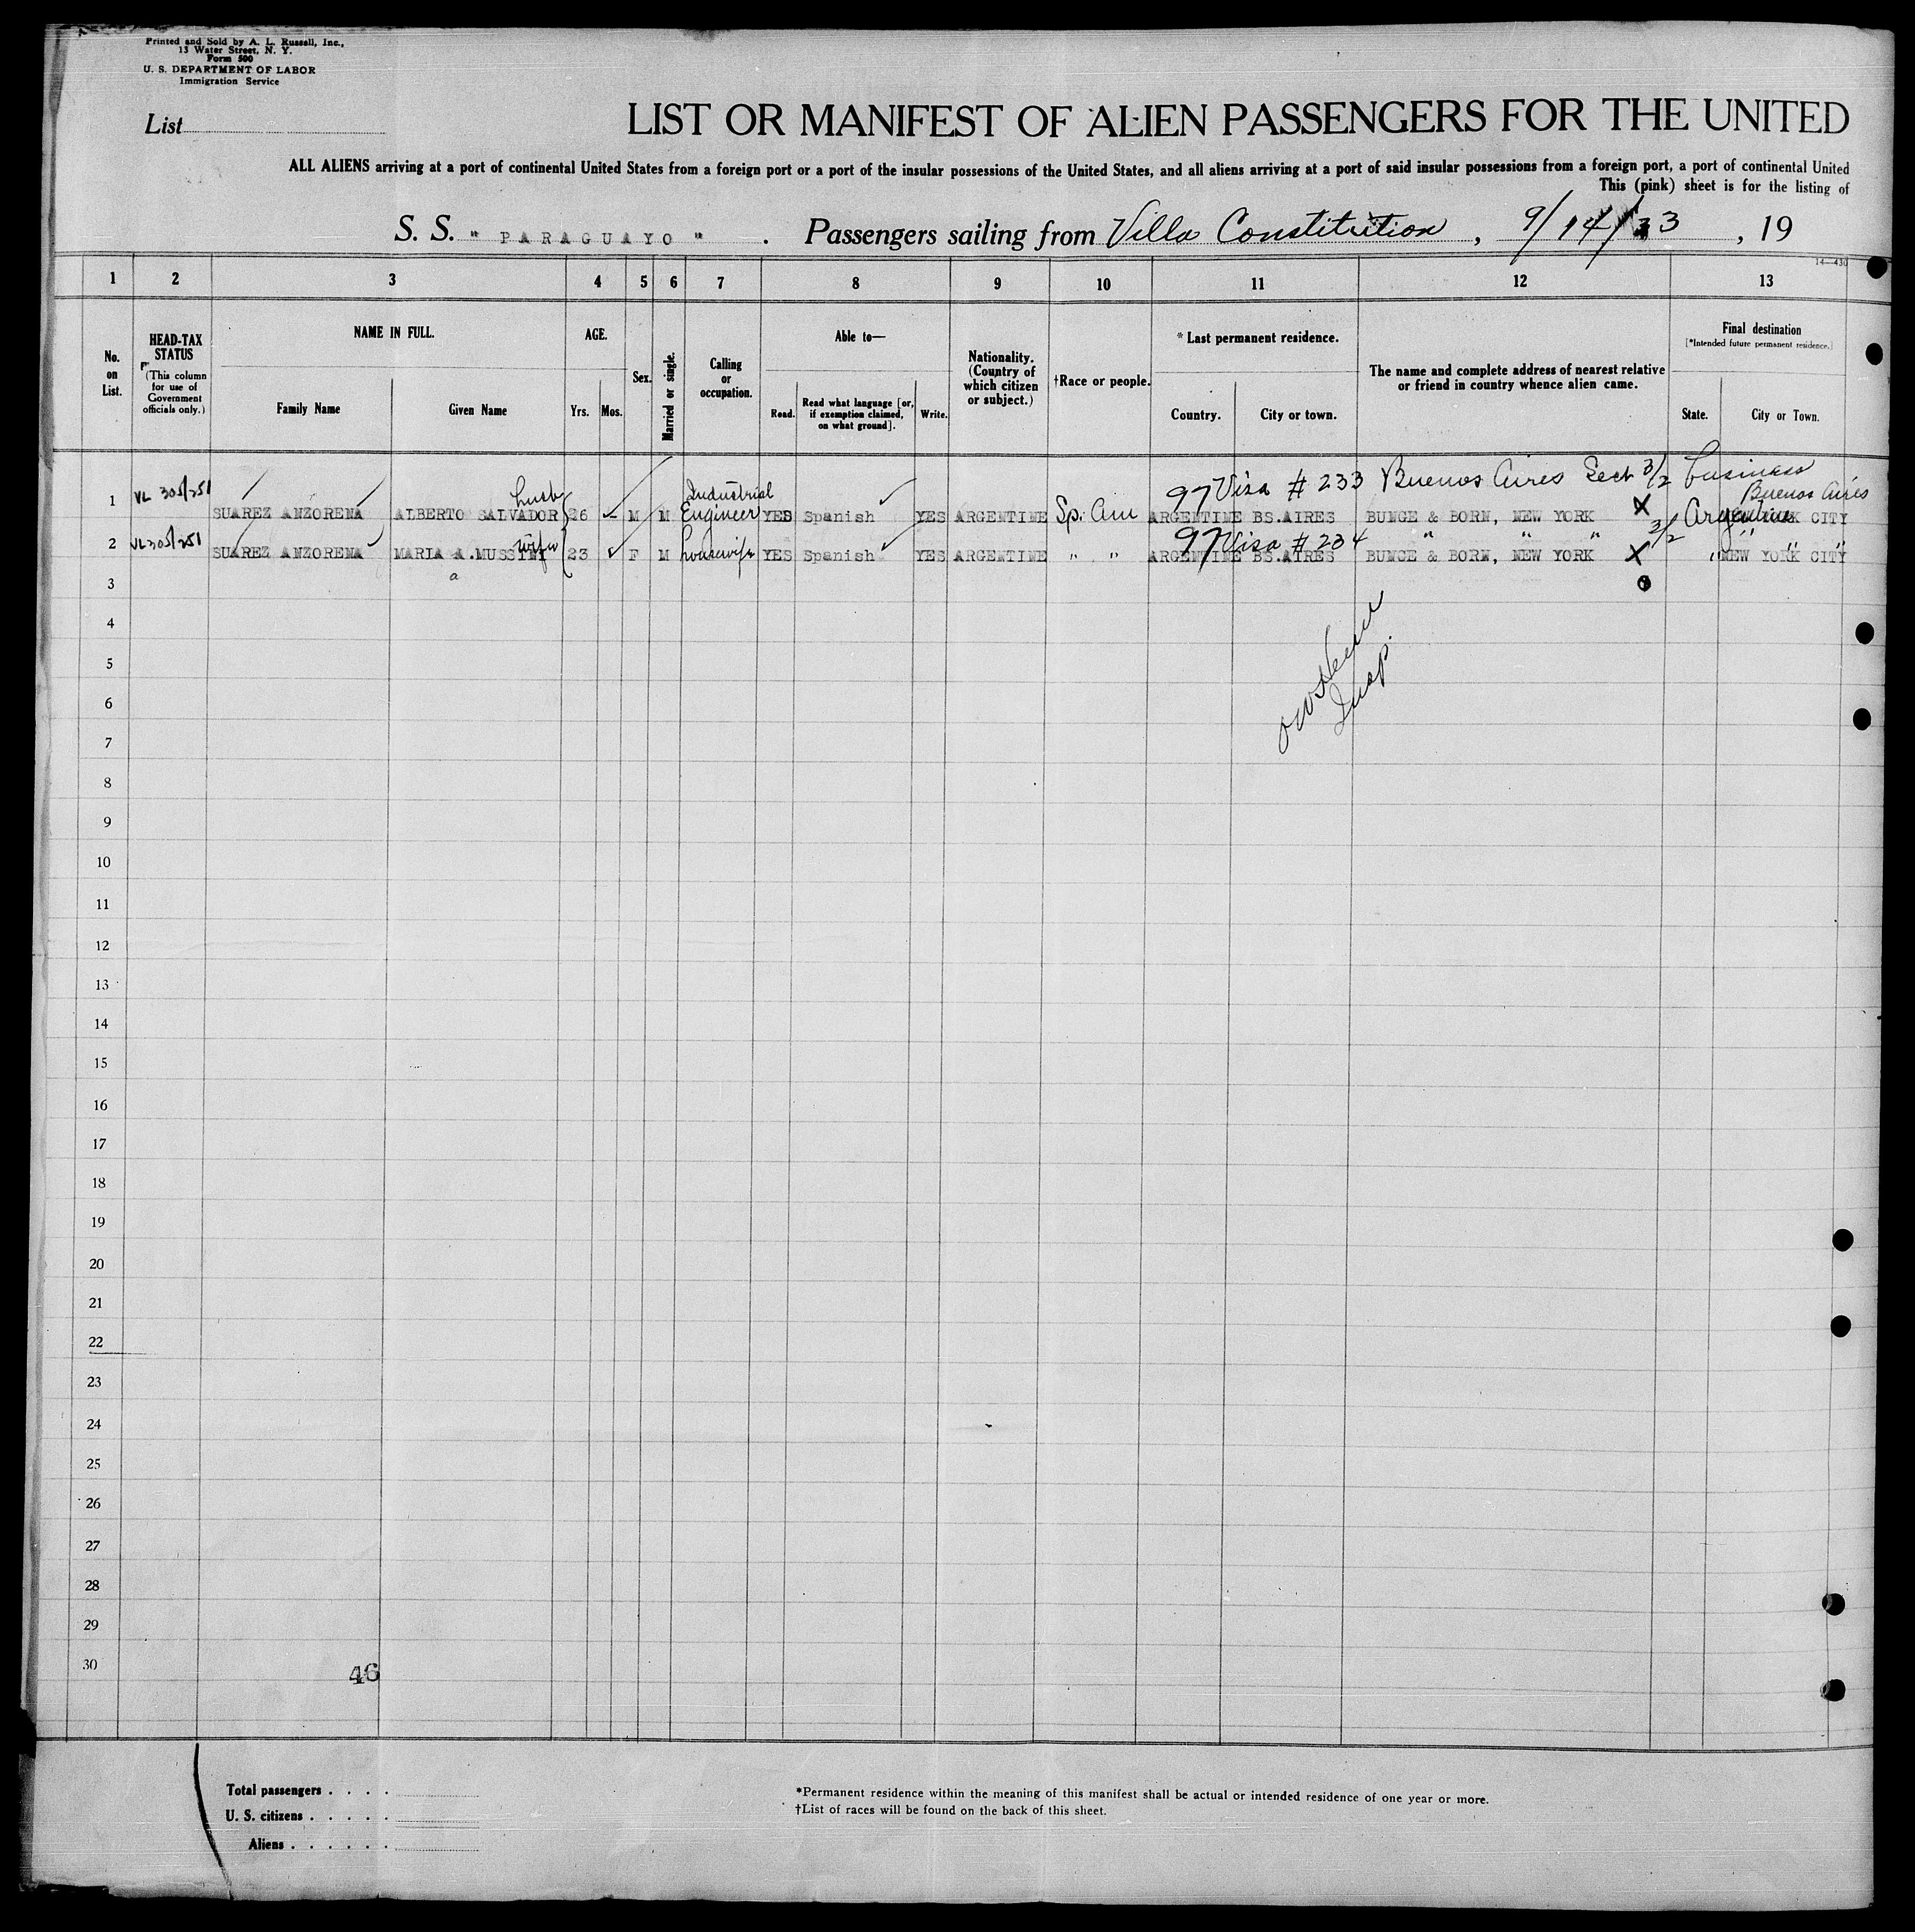 Printed and Sold by A. L. Russell, Inc.,
13 Water Street, N. Y.
Form 500
U. S. DEPARTMENT OF LABOR
Immigration Service
List
LIST OR MANIFEST OF ALIEN PASSENGERS FOR THE UNITED
ALL ALIENS arriving at a port of continental United States from a foreign port or a port of the insular possessions of the United States, and all aliens arriving at a port of said insular possessions from a foreign port, a port of continental United
This (pink) sheet is for the listing of
S. S. " PARAGUAYO " . Passengers sailing from Villa Constitution, 9/14/33, 19
14—430
1 2 3 4 5 6 7 8 9 10 11 12 13
No. on List.
HEAD-TAX STATUS
(This column for use of Government officials only.)
NAME IN FULL.
Family Name
Given Name
AGE.
Yrs.
Mos.
Sex.
Married or single.
Calling or occupation.
Able to—
Read.
Read what language [or, if exemption claimed, on what ground].
Write.
Nationality. (Country of which citizen or subject.)
†Race or people.
* Last permanent residence.
Country.
City or town.
The name and complete address of nearest relative or friend in country whence alien came.
Final destination
[*Intended future permanent residence.]
State.
City or Town.
husb Industrial 97 Visa # 233 Buenos Aires Sect 3/2 business
Buenos Aires
1 VL 305/251 SUAREZ ANZORENA ALBERTO SALVADOR 26 M M Engineer YES Spanish YES ARGENTINE Sp. Am ARGENTINE BS.AIRES BUNGE & BORN, NEW YORK X Argentine CITY
wife 97 Visa # 234 " " " 3/2 " " "
2 VL305/251 SUAREZ ANZORENA MARIA A. 23 F M housewife YES Spanish YES ARGENTINE " " ARGENTINE BS.AIRES BUNGE & BORN, NEW YORK X " NEW YORK CITY
a
3
4
5
Insp.
6
7
8
9
10
11
12
13
14
15
16
17
18
19
20
21
22
23
24
25
26
27
28
29
30
46
Total passengers . . . .
U. S. citizens . . . . .
Aliens . . . . . .
*Permanent residence within the meaning of this manifest shall be actual or intended residence of one year or more.
†List of races will be found on the back of this sheet.